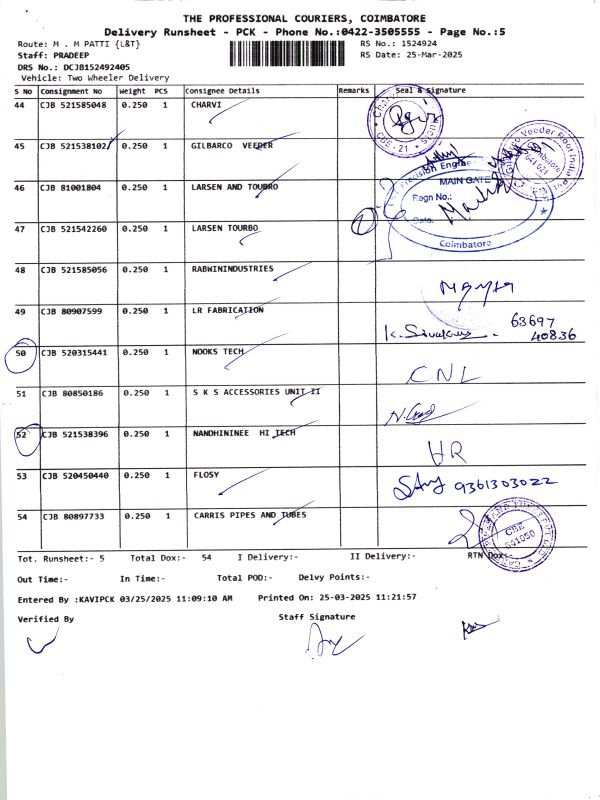 THE PROFESSIONAL COURIERS, COIMBATORE
Delivery Runsheet - PCK - Phone No.:0422-3505555 - Page No.:5
Route: M . M PATTI {L&T} RS No.: 1524924
Staff: PRADEEP RS Date: 25-Mar-2025
DRS No.: DCJB152492405
Vehicle: Two Wheeler Delivery
S No Consignment No Weight PCS Consignee Details Remarks Seal & Signature
44 CJB 521585048 0.250 1 CHARVI
CBE - 21
45 CJB 521538102 0.250 1 GILBARCO VEEDER
Coimbatore
46 CJB 81001804 0.250 1 LARSEN AND TOUBRO
MAIN GATE
Regn No.:
Date:
47 CJB 521542260 0.250 1 LARSEN TOURBO
Coimbatore
48 CJB 521585056 0.250 1 RABWININDUSTRIES
49 CJB 80907599 0.250 1 LR FABRICATION
K. Sivakumar 63697
40836
50 CJB 520315441 0.250 1 NOOKS TECH
CNL
51 CJB 80850186 0.250 1 S K S ACCESSORIES UNIT II
52 CJB 521538396 0.250 1 NANDHININEE HI TECH
HR
53 CJB 520450440 0.250 1 FLOSY
9361303022
54 CJB 80897733 0.250 1 CARRIS PIPES AND TUBES
CBE
641050
Tot. Runsheet:- 5 Total Dox:- 54 I Delivery:- II Delivery:- RTN Dox:-
Out Time:- In Time:- Total POD:- Delvy Points:-
Entered By :KAVIPCK 03/25/2025 11:09:10 AM Printed On: 25-03-2025 11:21:57
Verified By Staff Signature